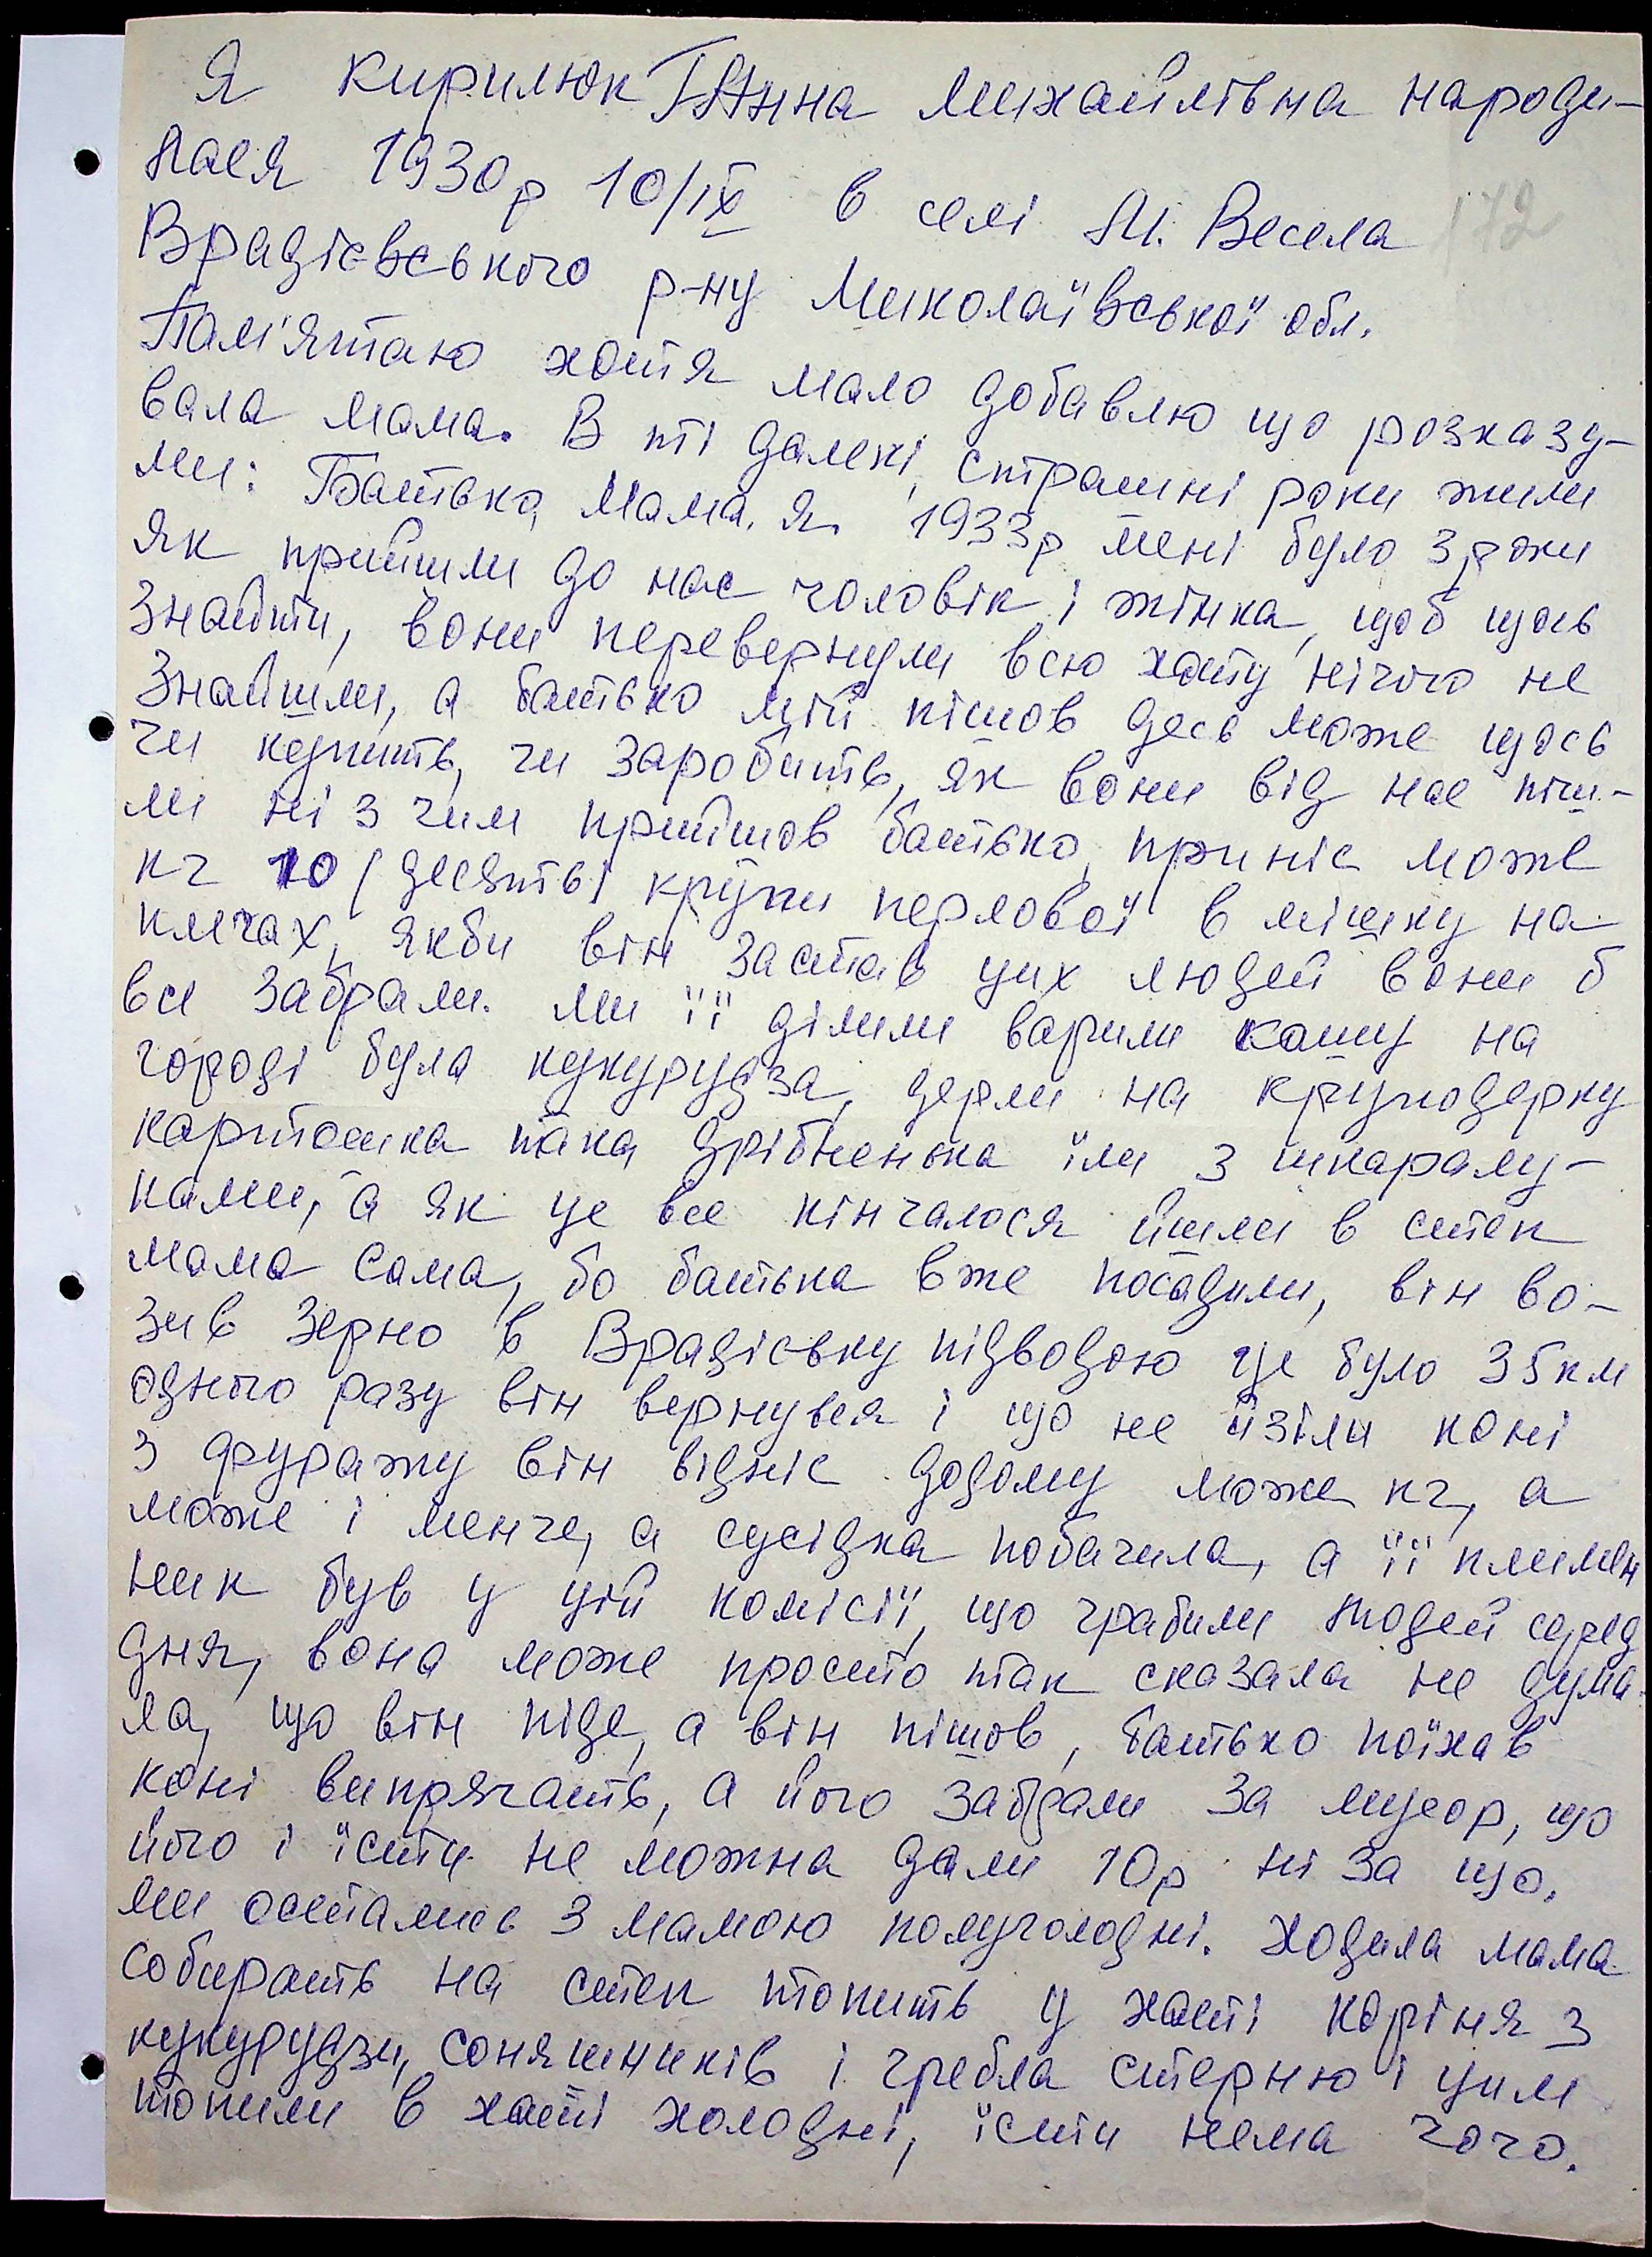 Я Кирилюк Ганна Михайлівна народи-
лася 1930р 10/ІХ в селі М. Весела
172
Врадієвського р-ну Миколаївської обл.
Пам'ятаю хотя мало добавлю що розказу-
вала мама. В ті далекі, страшні роки жили
ми: Батько, Мама, я. 1933р мені було 3 роки
як прийшли до нас чоловік і жінка, щоб щось
знайти, вони перевернули всю хату нічого не
знайшли, а батько мій пішов десь може щось
чи купить, чи заробить, як вони від нас піш-
ли ні з чим прийшов батько, приніс може
кг 10 (десять) крупи перлової в мішку на
плечах, якби він застав цих людей вони б
все забрали. Ми її ділили варили кашу на
городі була кукурудза, дерли на круподерку
картошка така дрібненька їли з шкаралу-
ками, а як це все кінчалося йшли в степ
мама сама, бо батька вже посадили, він во-
зив зерно в Врадієвку підводою це було 35км
одного разу він вернувся і що не їзіли коні
з фуражу він відніс додому може кг, а
може і менче, а сусідка побачила, а її племен
ник був у цій комісії, що грабили людей серед
дня, вона може просто так сказала не дума-
ла, що він піде, а він пішов, батько поїхав
коні випрягать, а його забрали за мусор, що
його і їсти не можна дали 10р ні за що.
ми остались з мамою полуголодні. Ходила мама
собирать на степ топить у хаті коріня з
кукурудзи, соняшників і гребла стерню і цим
топили в хаті холодні, їсти нема чого.